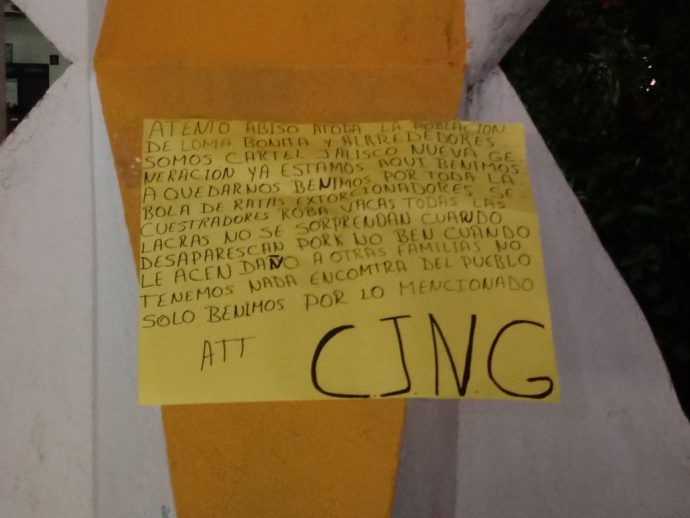 ATENTO ABISO ATODA LA POBLACION
DE LOMA BONITA Y ALRREDEDORES
SOMOS CARTEL JALISCO NUEVA GE-
NERACION YA ESTAMOS AQUI BENIMOS
A QUEDARNOS BENIMOS POR TODA LA
BOLA DE RATAS EXTORCIONADORES SE-
CUESTRADORES ROBA VACAS TODAS LAS
LACRAS NO SE SORPRENDAN CUANDO
DESAPARESCAN PORK NO BEN CUANDO
LE ACEN DAÑO A OTRAS FAMILIAS NO
TENEMOS NADA ENCOMTRA DEL PUEBLO
SOLO BENIMOS POR LO MENCIONADO
ATT
C.J.N.G